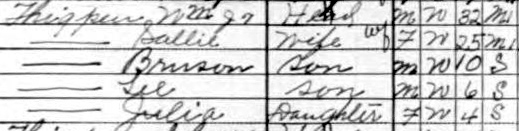 Thigpen Wm Jr Head M W 32 M1
—— Sallie Wife F W 25 M1
—— Bruson Son M W 10 S
—— Lee Son M W 6 S
—— Julia Daughter F W 4 S